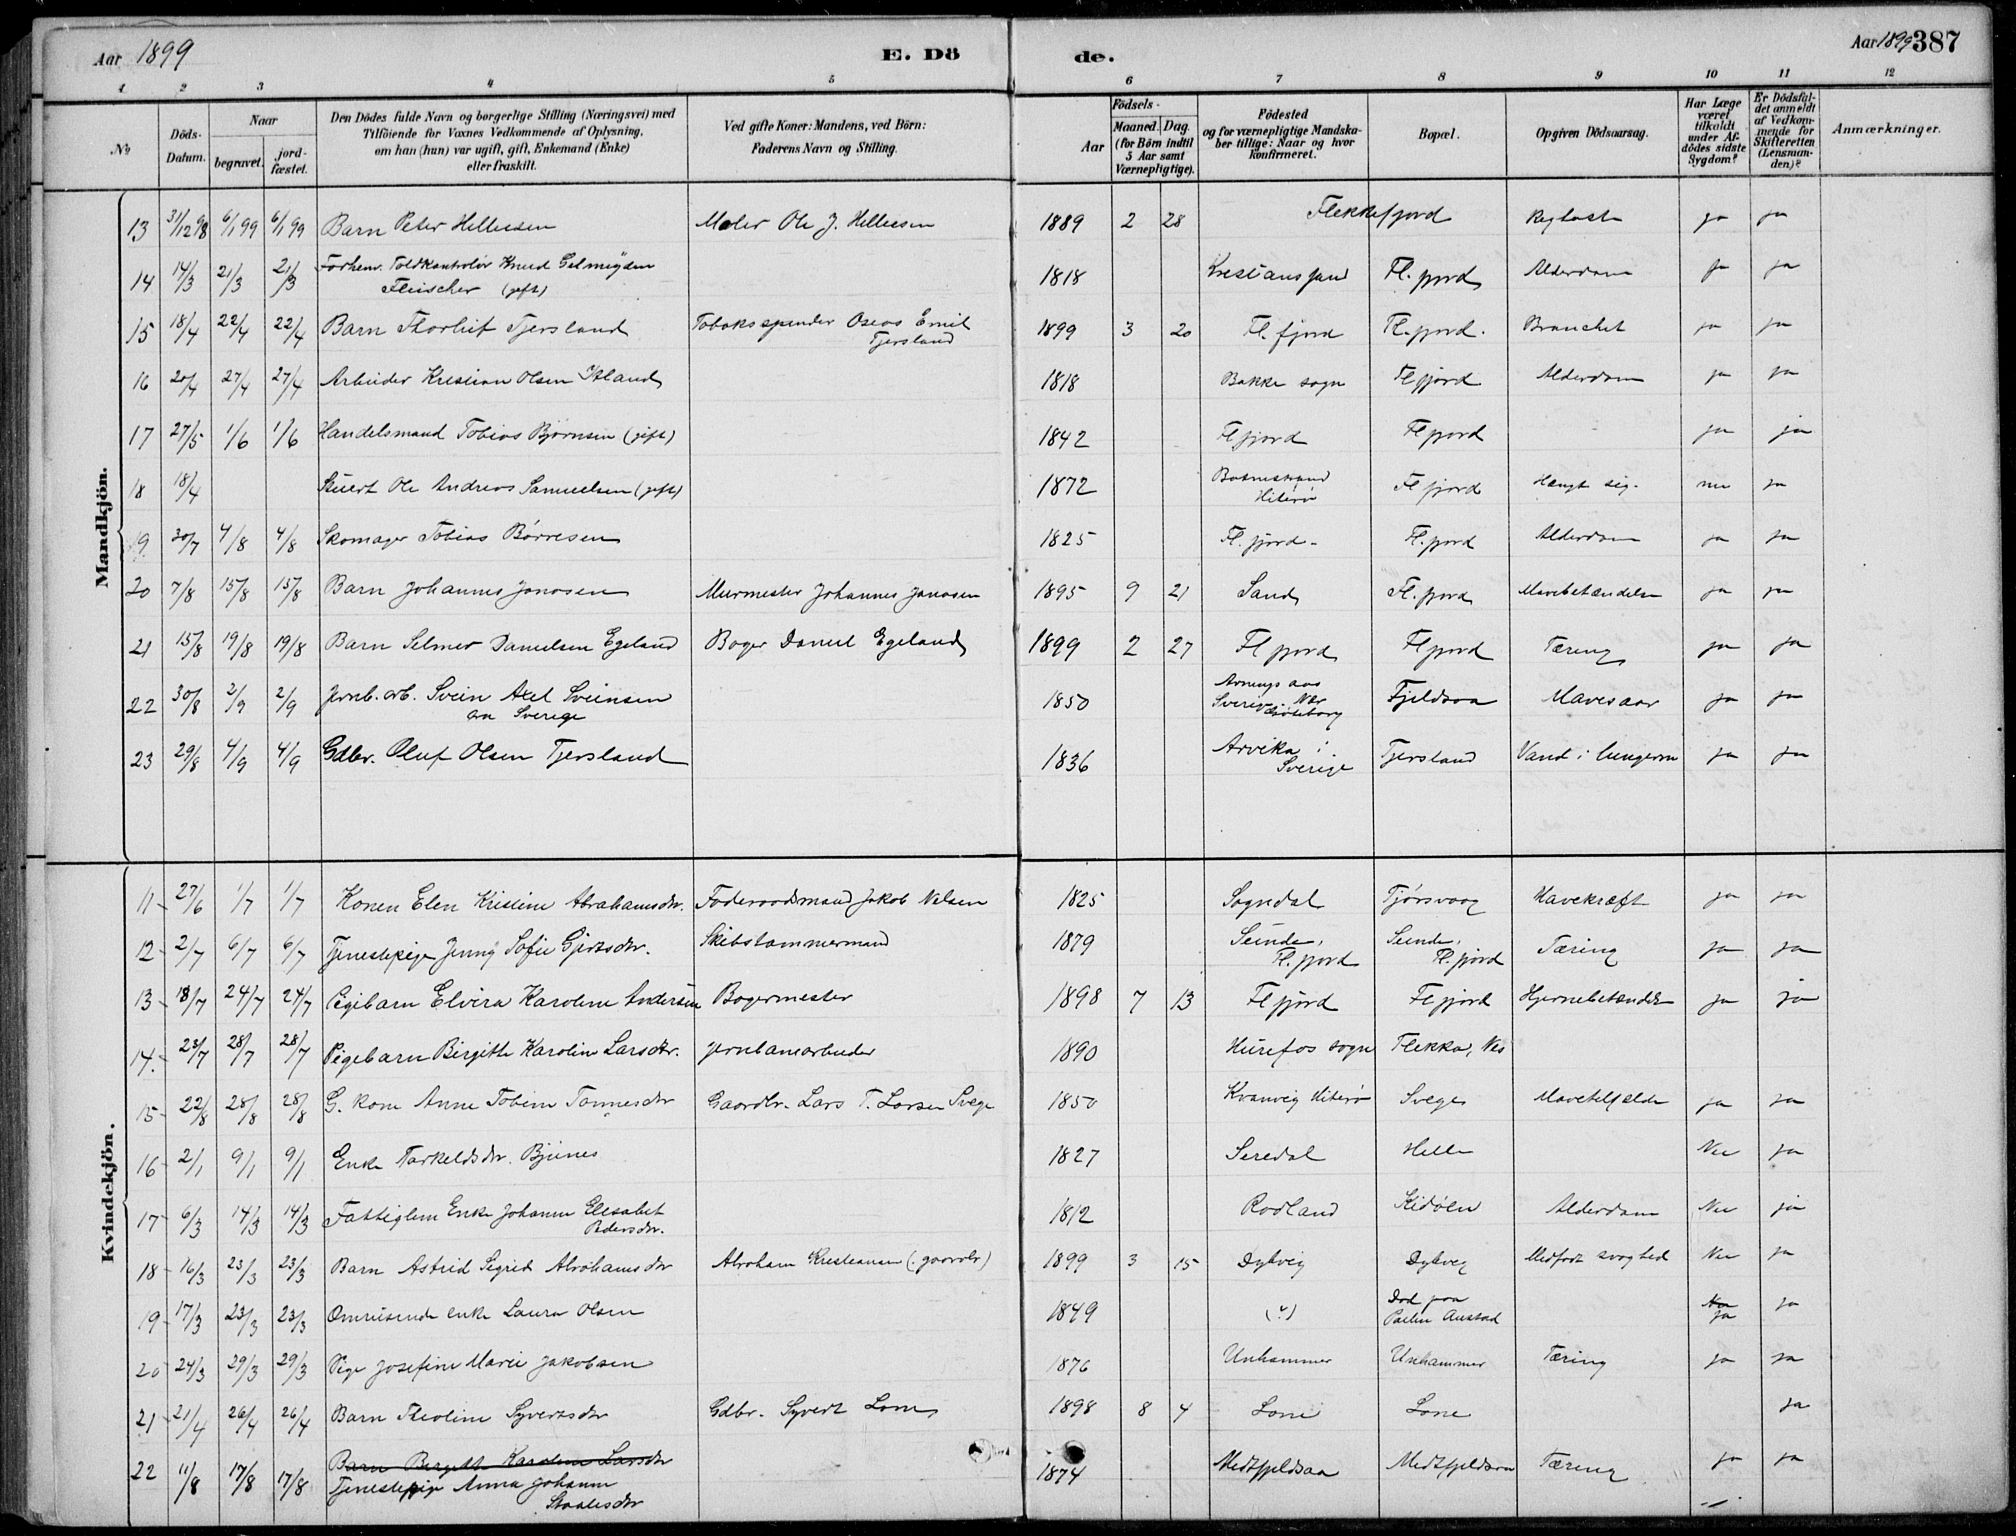 Aar 1899
E. Dö
de.
Aar 1899 387
1 2 3 4 5 6 7 8 9 10 11 12
No
Döds-Datum.
Naar
begravet.
jord-fæstet.
Den Dödes fulde Navn og borgerlige Stilling (Næringsvei) med
Tilföiende for Vaxnes Vedkommende af Oplysning,
om han (hun) var ugift, gift, Enkemand (Enke)
eller fraskilt.
Ved gifte Koner: Mandens, ved Börn:
Faderens Navn og Stilling.
Födsels-
Aar
Maaned. Dag.
(for Börn indtil
5 Aar samt
Værnepligtige).
Födested
og for værnepligtige Mandska-
ber tillige: Naar og hvor
konfirmeret.
Bopæl.
Opgiven Dödsaarsag.
Har Læge
været
tilkaldt
under Af-
dödes sidste
Sygdom?
Er Dödsfal-
det anmeldt
af Vedkom-
mende for
Skifteretten
(Lensman-
den)?
Anmærkninger.
Mandkjön.
13 31/12 98 6/1 99 6/1 99 Barn Peter Hellesen Maler Ole J. Hellesen 1889 2 28 Flekkefjord ja ja
14 14/3 21/3 21/3 Forhenv. Toldkontrolør Knud Gelmeyden
Fleischer (gift) 1818 Kristiansand Fl.fjord Alderdom ja ja
15 18/4 22/4 22/4 Barn Thorleif Tjersland Tobaksspinder Oscar Emil
Tjersland 1899 3 20 Fl. fjord Fl.fjord. Bronchit ja ja
16 20/4 27/4 27/4 Arbeider Kristian Olsen 1818 Bakke sogn Flfjord Alderdom ja ja
17 27/5 1/6 1/6 Handelsmand Tobias Bjørnsen (gift) 1842 Flfjord Flfjord ja ja
18 18/4 Stuert Ole Andreas Samuelsen (gift) 1872
Hiterø Flfjord Hængt sig. nei ja
19 30/7 4/8 4/8 Skomager Tobias Børresen 1825 Fl.fjord. Fl.fjord Alderdom ja ja
20 7/8 15/8 15/8 Barn Johannes Jonasen Murmester Johannes Jonasen 1895 9 21 Sand Fl.fjord Mavebetændelse ja ja
21 15/8 19/8 19/8 Barn Selmer Danielsen Egeland Bager Daniel Egeland 1899 2 27 Flfjord Flfjord Tæring ja ja
22 30/8 2/9 2/9 Jernb. arb. Svein Axel Sveinsen
fra Sverige 1850
Sverige. Nær
Gøteborg Fjeldsaa Mavesaar ja ja
23 29/8 4/9 4/9 Gdbr. Oluf Olsen Tjersland 1836 Arvika i
Sverige Tjersland Vand i lungerne ja ja
Kvindekjön.
11 27/6 1/7 1/7 Konen Elen Kristine Abrahamsdtr. Føderaadsmand Jakob Nilsen 1825 Sogndal Tjørsvaag Mavekræft ja ja
12 2/7 6/7 6/7 Tjenestepige Jenny Sofie Gjertsdtr. Skibstømmermand 1879 Sunde,
Fl.fjord Sunde,
Fl.fjord Tæring ja ja
13 18/7 24/7 24/7 Pigebarn Elvira Karoline Andersen Bagermester 1898 7 13 Flfjord Flfjord Hjernebetændelse ja ja
14. 23/7 28/7 28/7 Pigebarn Birgitte Karoline Larsdtr. Jernbanearbeider 1890 Hurefos sogn Flikka, Nes
15 22/8 28/8 28/8 G. kone Anne Tobine Tønnesdtr Gaardbr. Lars T. Larsen Svege 1850 Kvanvig Hiterø Svege Mavetilfælde ja ja
16 2/1 9/1 9/1 Enke Torkeldsdtr. Bjunes 1827 Siredal Helle Nei ja
17 6/3 14/3 14/3 Fattiglem Enke Johanne Elisabet
Pedersdtr. 1812 Rødland Alderdom Nei ja
18 16/3 23/3 23/3 Barn Astrid Sigrid Abrahamsdtr Abraham Kristiansen (gaardbr) 1899 3 15 Dybvig Dybvig Medfødt svaghed Nei ja
19 17/3 23/3 23/3 Omreisende enke Laura Olsen 1849 (?) Død paa
Austad Nei
ja ja
20 24/3 29/3 29/3 Pige Josefine Marie Jakobsen 1876 Unhammer Unhammer Tæring ja ja
21 21/4 26/4 26/4 Barn Theoline Syvertsdtr Gdbr. Syvert Lone 1898 8 4 Lone Lone ja
22 11/8 17/8 17/8 Barn Birgitte Karoline Larsdtr
Tjenestepige Anna Johanne
Staalesdtr 1874 Midtfjeldsaa Midtfjeldsaa Tæring ja ja